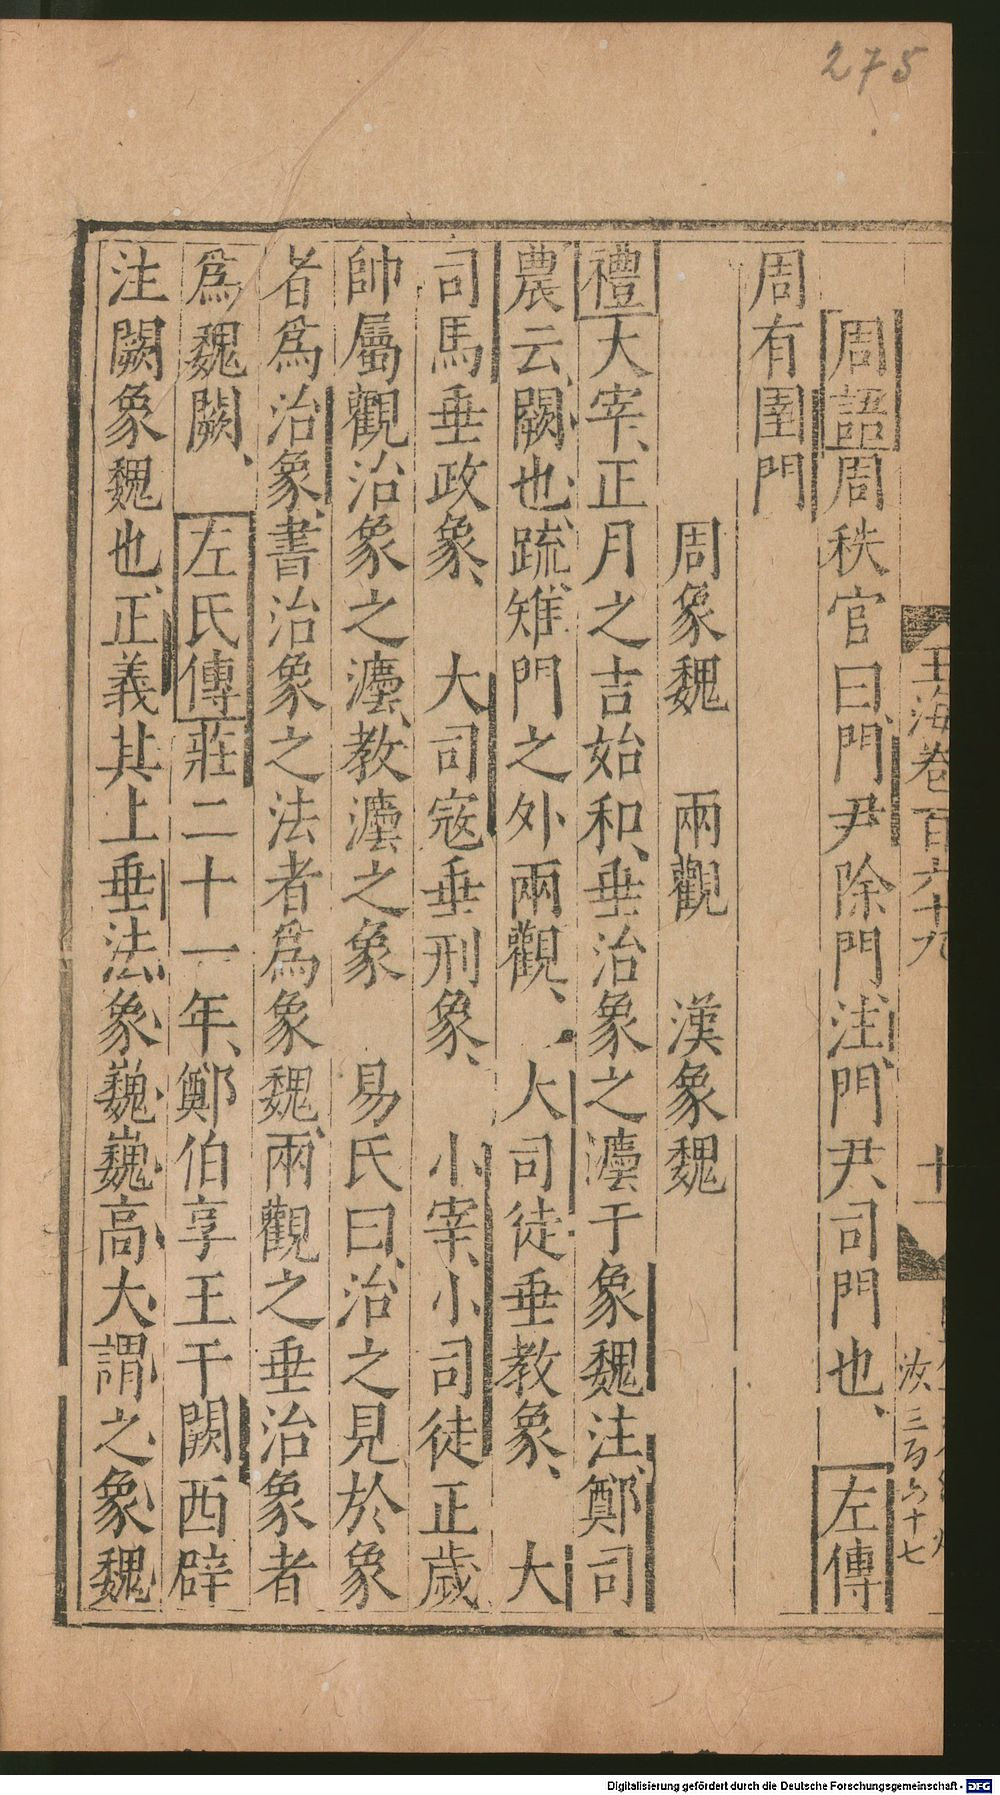 275
玉海卷一百六十九
十一
三百六十七
周語周秩官曰門尹除門注門尹司門也左傳
周有圉門
周象魏 兩觀 漢象魏
禮大宰正月之吉始和垂治象之灋于象魏注鄭司
農云闕也疏雉門之外兩觀 大司徒垂教象 大
司馬垂政象 大司寇垂刑象 小宰小司徒正歲
帥屬觀治象之灋教灋之象 易氏曰治之見於象
者爲治象書治象之法者爲象魏兩觀之垂治象者
爲魏闕 左氏傳莊二十一年鄭伯享王于闕西辟
注闕象魏也正義其上垂法象巍巍高大謂之象魏
Digitalisierung gefördert durch die Deutsche Forschungsgemeinschaft - DFG